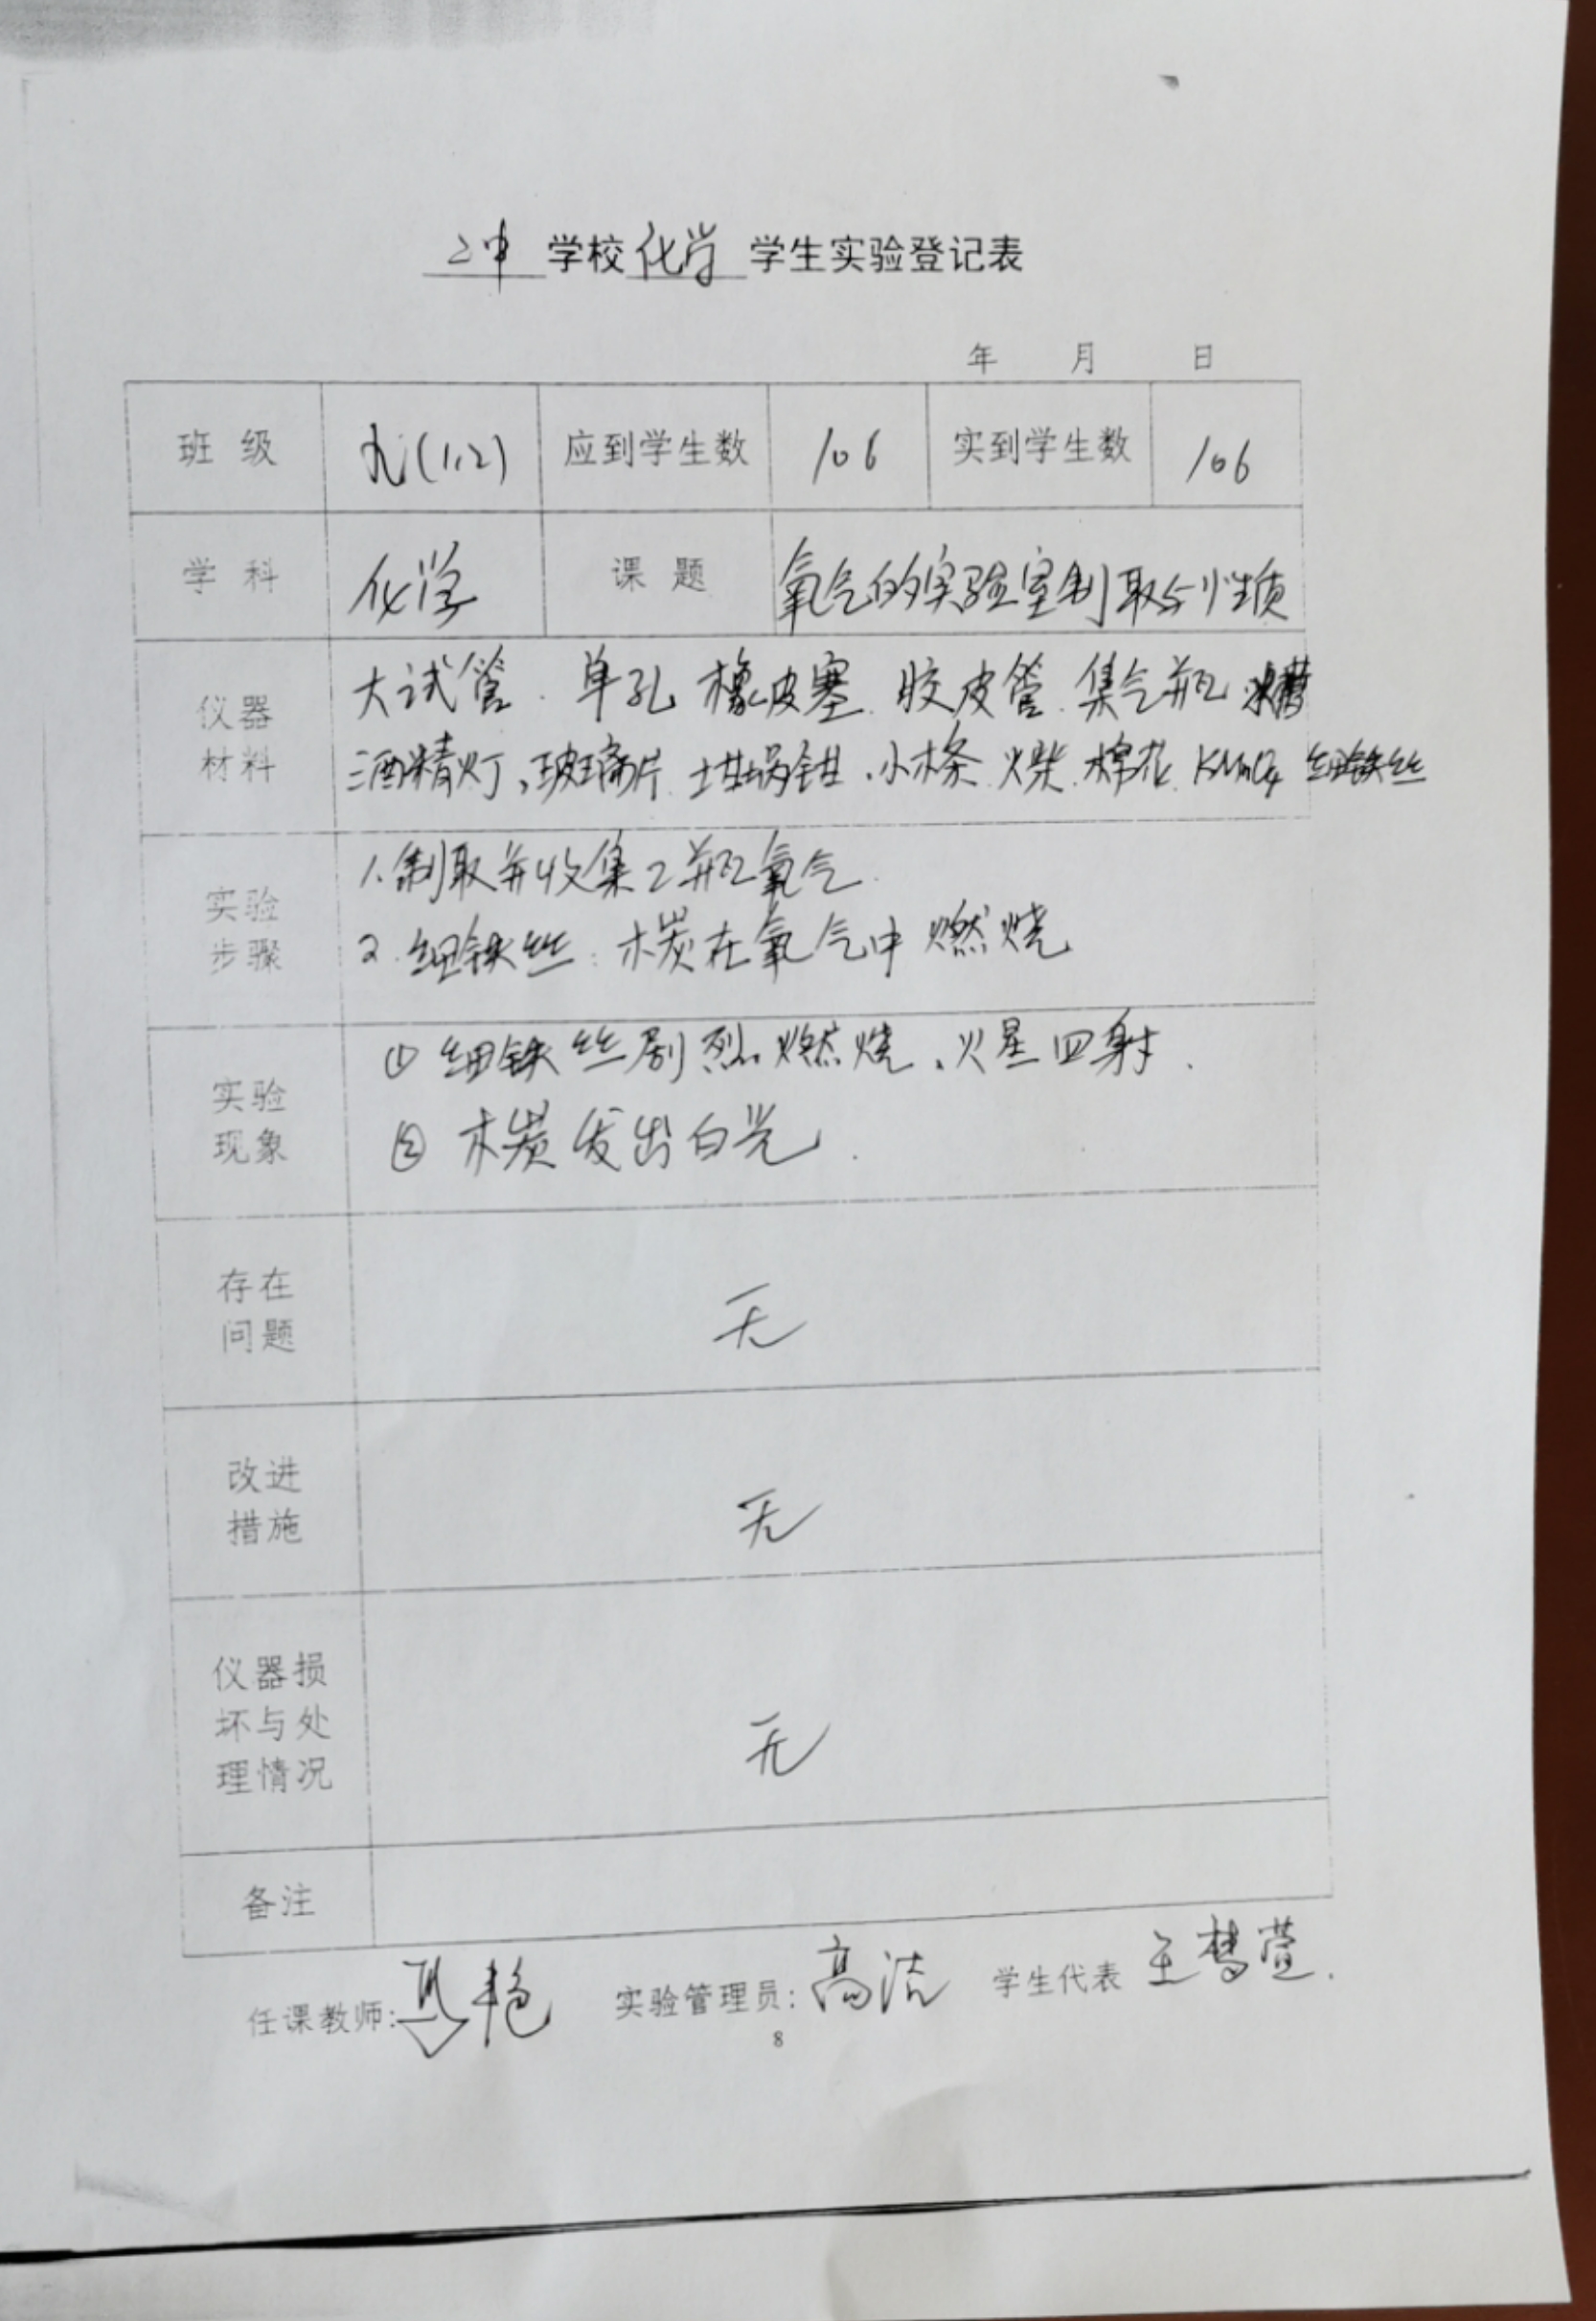 二中 学校 化学 学生实验登记表
年 月 日
班 级 九(1,2) 应到学生数 106 实到学生数 106
学 科 化学 课 题 氧气的实验室制取与性质
仪器
材料
大试管、单孔橡皮塞、胶皮管、集气瓶、水槽
酒精灯、玻璃片、坩埚钳、小木条、火柴、棉花、KMnO4 细铁丝
实验
步骤
1.制取并收集2瓶氧气.
2.细铁丝、木炭在氧气中燃烧
实验
现象
① 细铁丝剧烈燃烧、火星四射.
② 木炭发出白光.
存在
问题
无
改进
措施
无
仪器损
坏与处
理情况
无
备注
任课教师: 艳 实验管理员: 高洁 学生代表 王梦萱.
8